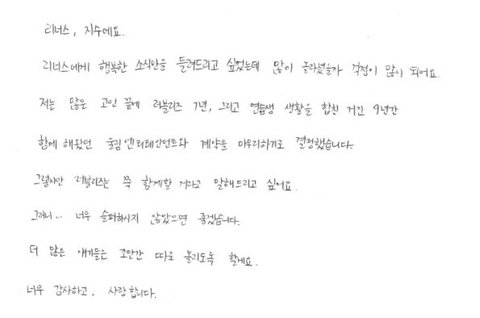 리너스, 지수에요.
리너스에게 행복한 소식만을 들려드리고 싶었는데 많이 놀라셨을까 걱정이 많이 되어요
저는 많은 고민 끝에 러블리즈 7년, 그리고 연습생 생활을 합친 거진 9년간
함께 해왔던 울림엔터테인먼트와 계약을 마무리하기로 결정했습니다.
그렇지만 러블리즈는 쭉 함께할 거라고 말해드리고 싶어요.
그러니.. 너무 슬퍼하시지 않았으면 좋겠습니다.
더 많은 얘기들은 조만간 따로 올리도록 할게요.
너무 감사하고, 사랑합니다.